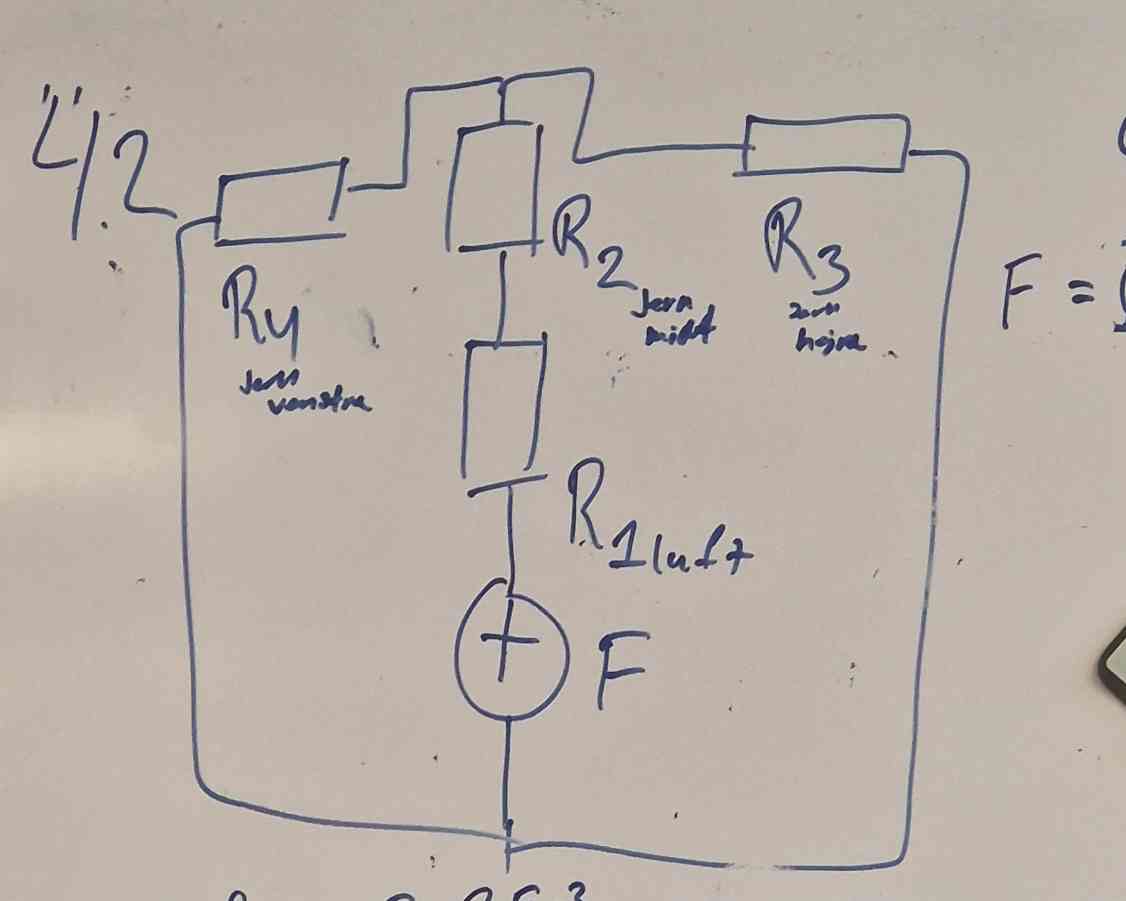 4/2
R4
Jern
venstre
R2
Jern
midt
R3
Jern
højre
F =
R1 luft
F